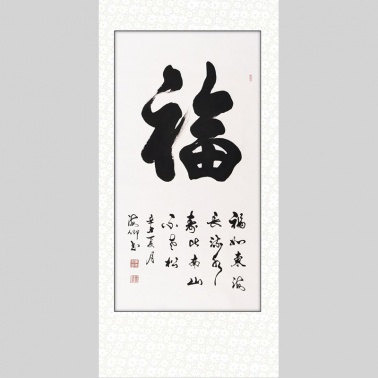 福
福如東海
長流水
壽比南山
不老松
辛丑夏月